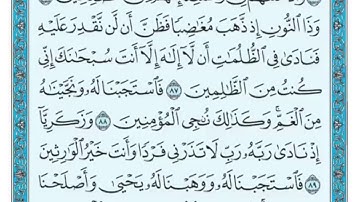 وَذَا ٱلنُّونِ إِذ ذَّهَبَ مُغَٰضِبًا فَظَنَّ أَن لَّن نَّقْدِرَ عَلَيْهِ
فَنَادَىٰ فِى ٱلظُّلُمَٰتِ أَن لَّآ إِلَٰهَ إِلَّآ أَنتَ سُبْحَٰنَكَ إِنِّى
كُنتُ مِنَ ٱلظَّٰلِمِينَ ٨٧ فَٱسْتَجَبْنَا لَهُۥ وَنَجَّيْنَٰهُ
مِنَ ٱلْغَمِّ ۚ وَكَذَٰلِكَ نُـۨجِى ٱلْمُؤْمِنِينَ ٨٨ وَزَكَرِيَّآ
إِذْ نَادَىٰ رَبَّهُۥ رَبِّ لَا تَذَرْنِى فَرْدًا وَأَنتَ خَيْرُ ٱلْوَٰرِثِينَ
٨٩ فَٱسْتَجَبْنَا لَهُۥ وَوَهَبْنَا لَهُۥ يَحْيَىٰ وَأَصْلَحْنَا